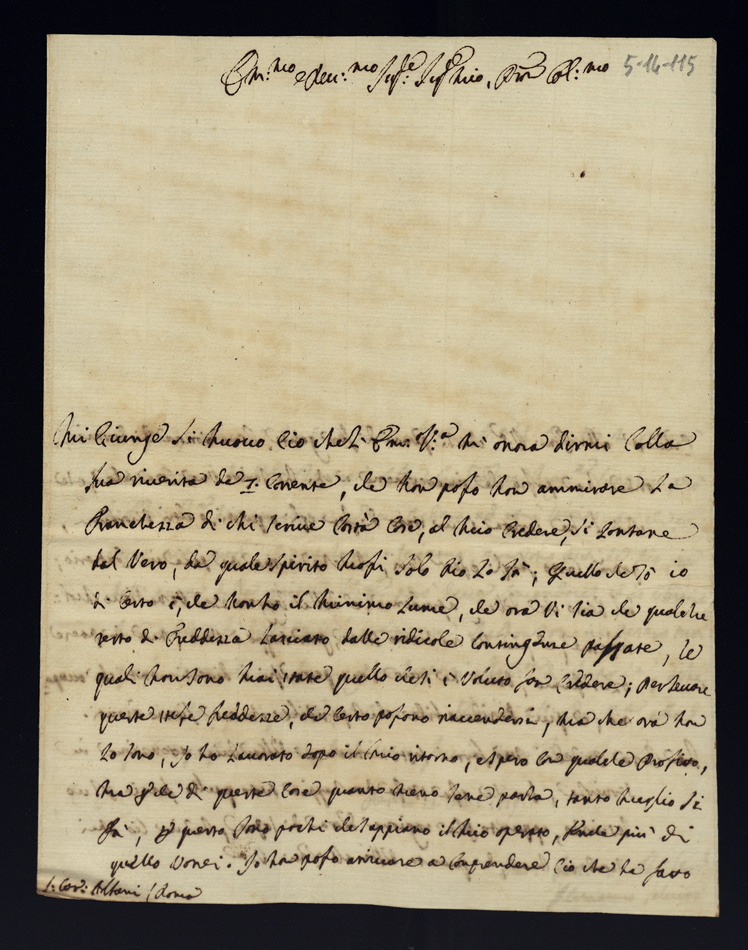 Em:mo e Rev:mo Sig:re Sig:re mio, Pron Col:mo 5-14-115
Mi Giunge di nuovo Ciò che l' Em. V:a mi onora dirmi Colla
sua riverita de I. Corrente, che non posso non ammirare La
Franchezza di chi scrive Certe Cose, al mio Credere, sì Lontane
dal Vero, da quale Spirito mossi solo Dio Lo sà; Quello che sò io
di Certo è, che non ho il minimo Lume, che ora Vi sia che qualche
resto di Freddezza Lasciato dalle ridicole Contingenze passate, Le
quali non sono mai state quello che si è Voluto far Credere; per Levare
queste stesse freddezze, che Certo possono riaccendersi, ma che ora non
Lo sono, Io ho Lavorato dopo il mio ritorno, e spero Con qualche Profitto,
ma che di queste Cose quanto meno se ne parla, tanto meglio si
fà, per questo sono pochi che sappiano il mio operato, che più di
quello Vorrei. Io non posso arrivare a Comprendere Ciò che ha fatto
S: Car: Albani (Roma